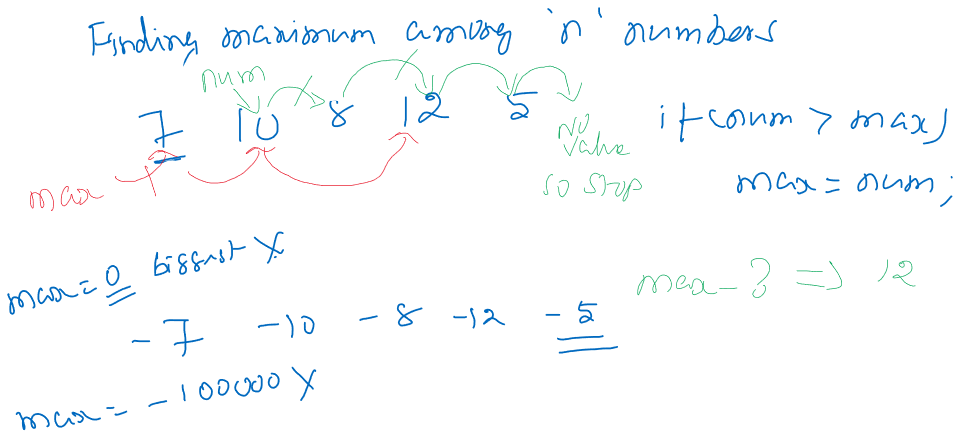 Finding maximum among 'n' numbers
num
7 10 8 12 5
if(num > max)
No
value
so stop
max
max = num;
max = 0 biggest X
max - ? => 12
- 7 - 10 - 8 - 12 - 5
max = - 100000 X